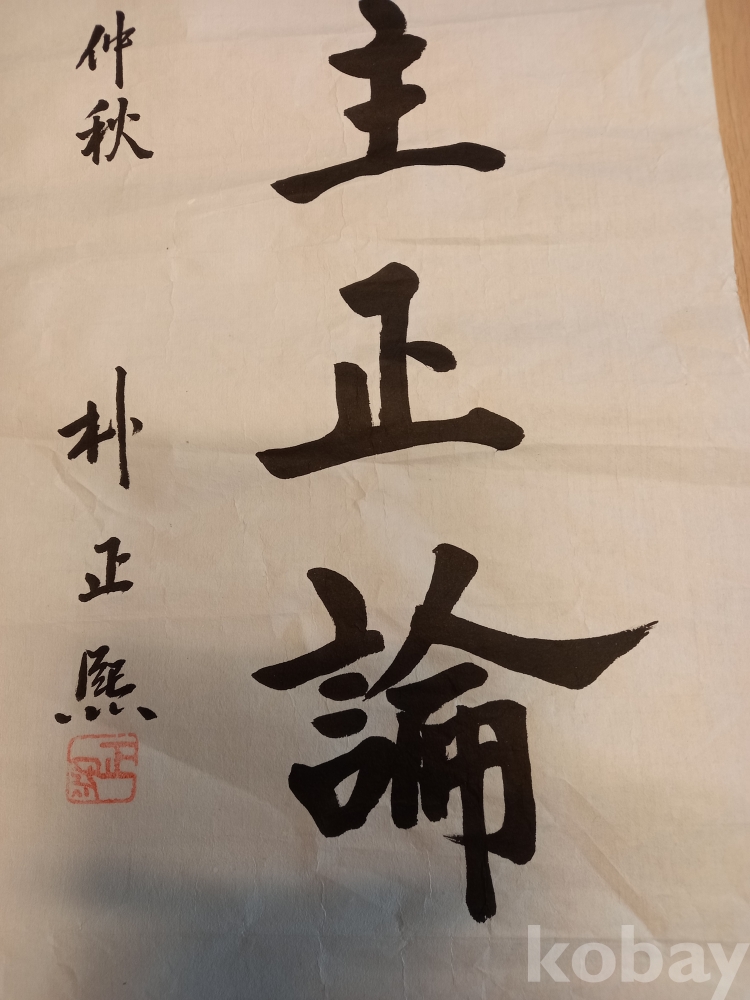 主正論
仲秋 朴正熙
kobay